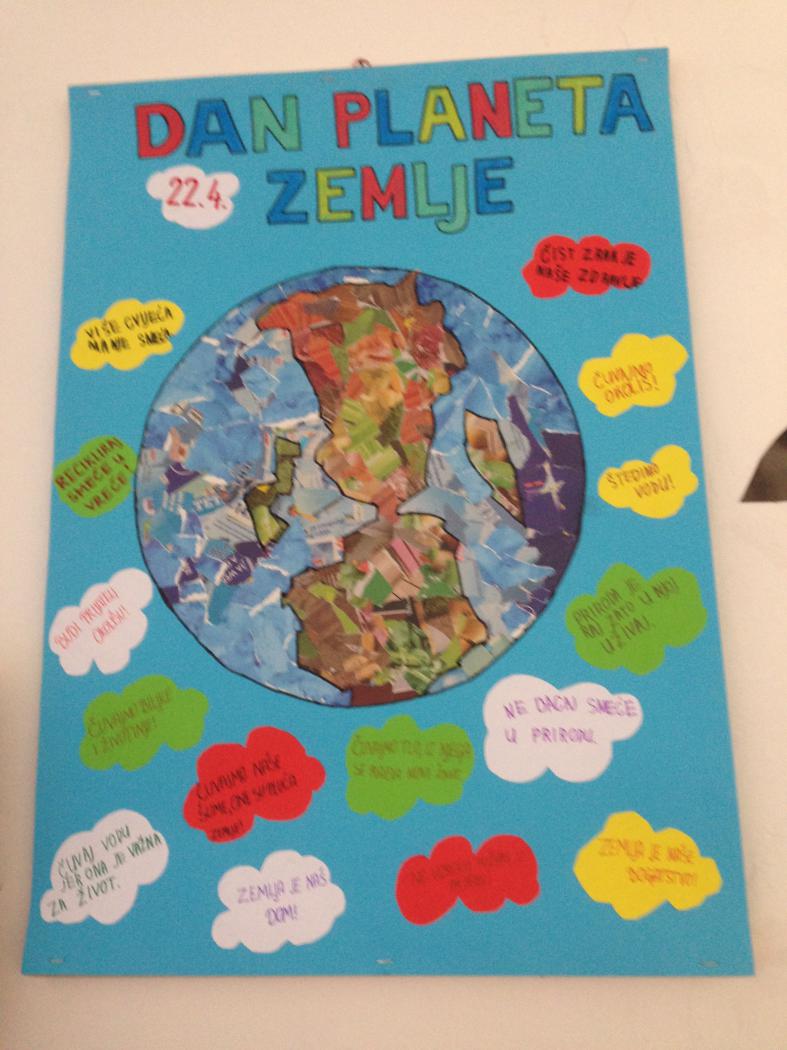 DAN PLANETA
ZEMLJE
22.4.
ČIST ZRAK JE
NAŠE ZDRAVLJE
VIŠE CVIJEĆA
MANJE SMEĆA
ČUVAJMO
OKOLIŠ!
RECIKLIRAJ
SMEĆE U
VREĆE!
ŠTEDIMO
VODU!
BUDI PRIJATELJ
OKOLIŠU!
PRIRODA JE
RAJ ZATO U NJOJ
UŽIVAJ.
ČUVAJMO BILJKE
I ŽIVOTINJE!
NE BACAJ SMEĆE
U PRIRODU.
ČUVAJMO NAŠE
ŠUME, ONE SU PLUĆA
ZEMLJE!
ČUVAJMO TLO, IZ NJEGA
SE RAĐA NOVI ŽIVOT.
ČUVAJ VODU
JER ONA JE VAŽNA
ZA ŽIVOT.
ZEMLJA JE NAŠ
DOM!
ZEMLJA JE NAŠE
BOGATSTVO!